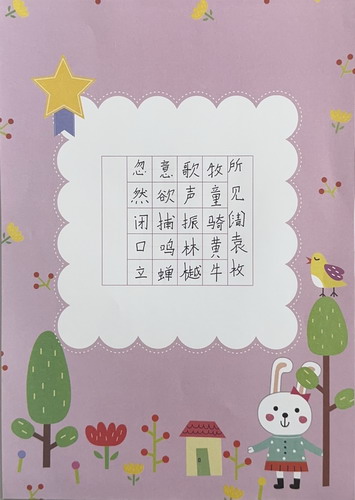 所见[清]袁枚
牧童骑黄牛
歌声振林樾
意欲捕鸣蝉
忽然闭口立